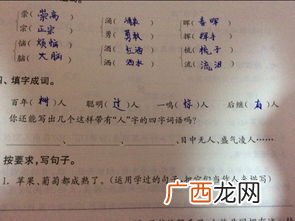 崇(崇高) 涌( ) 晖(春晖)
宗(正宗) 勇(勇敢) 辉( )
恼(烦恼) 酒(红酒) 桃(桃子)
脑(大脑) 洒(洒水) 挑( )
四、填字成词。
百年(树)人 聪明(过)人 一鸣(惊)人 后继(有)人
你还能写出几个这样带有“人”字的四字词语吗?
、 、 、目中无人、盛气凌人……
按要求,写句子。
1. 苹果、葡萄都成熟了。(运用学过的句子,把它们当作人来描写)
广西龙网